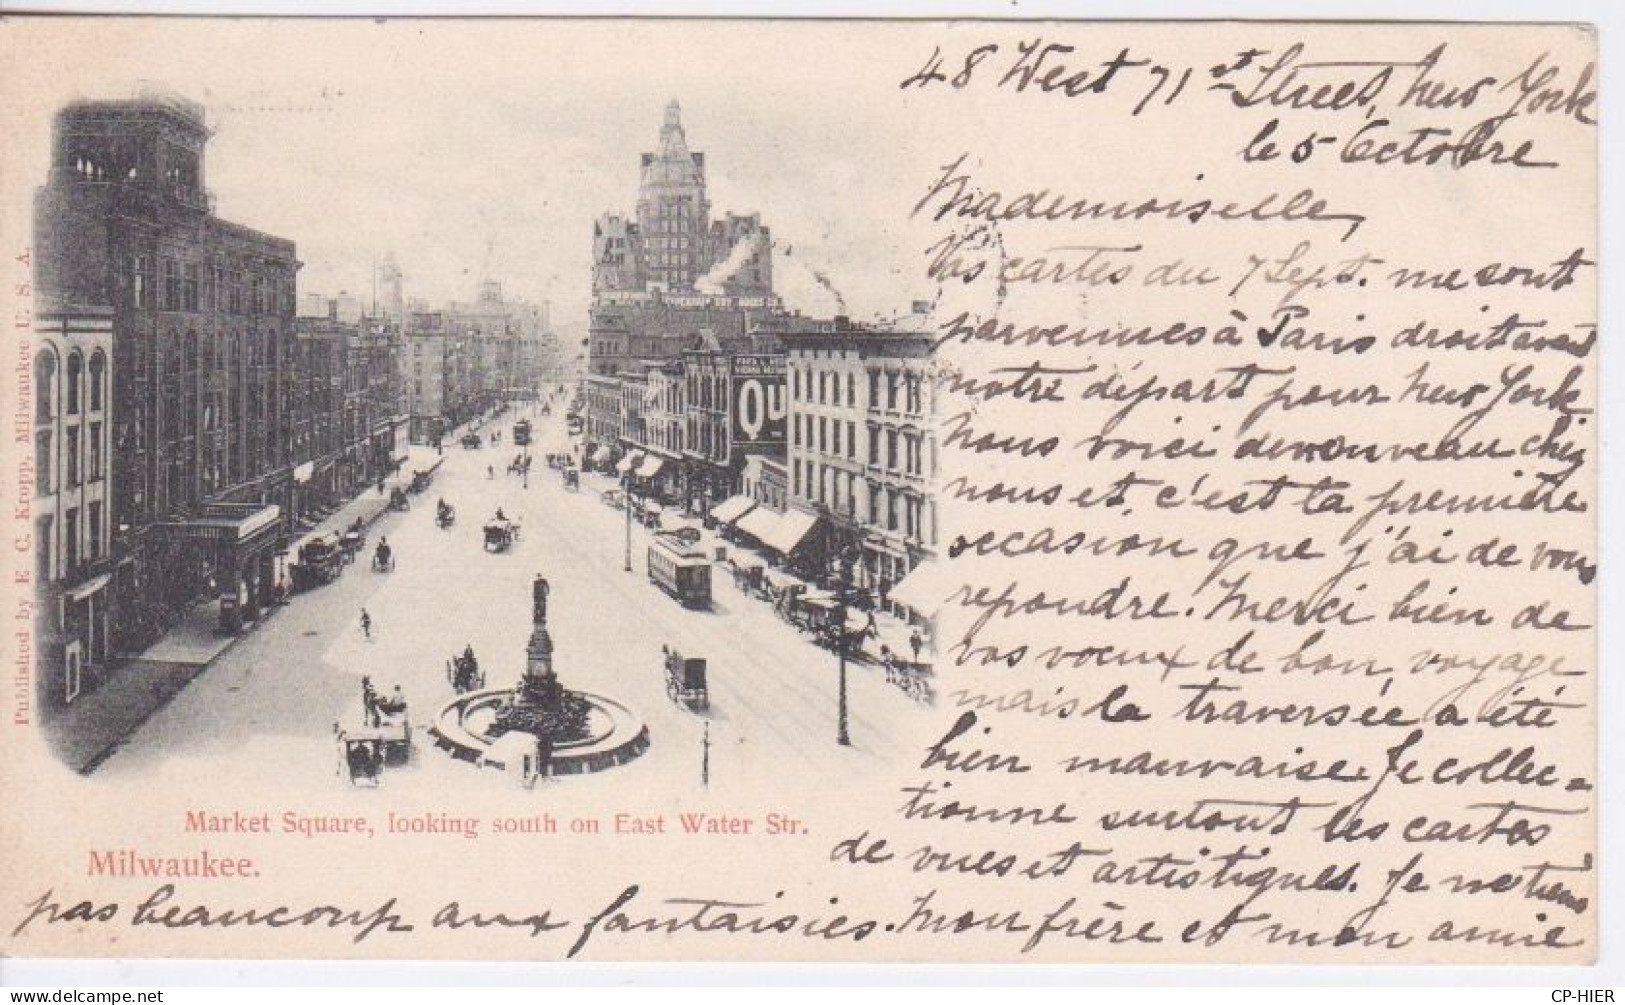 48 West 71st Street, New York
le 5 Octobre
Mademoiselle,
Vos cartes du 7 Sept. me sont
parvenues à Paris droit avant
notre départ pour New York
Nous voici de nouveau chez
nous et, c'est la première
occasion que j'ai de vous
repondre. Merci bien de
vos voeux de bon voyage
mais la traversée a été
bien mauvaise. Je collec-
tionne surtout les cartes
de vues et artistiques. Je ne tiens
pas beaucoup aux fantaisies. Mon frère et mon amie
Market Square, looking south on East Water Str.
Milwaukee.
Published by E. C. Kropp, Milwaukee U. S. A.
Qu
CP-HIER